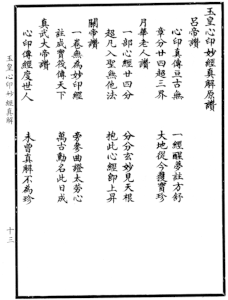 玉皇心印妙經真解原讚
呂帝讚
心印真傳亘古無
一經醒夢註方舒
章分廿四超三界
大地從今獲寶珍
月華老人讚
一部心經廿四分
分分玄妙見天根
超凡入聖無他法
抱此心經即上昇
關帝讚
一卷無為妙印經
旁參曲證太勞心
註成寶筏傳天下
萬古勳名此日成
真武大帝讚
心印傳經度世人
未曾真解不為珍
玉皇心印妙經真解
十三